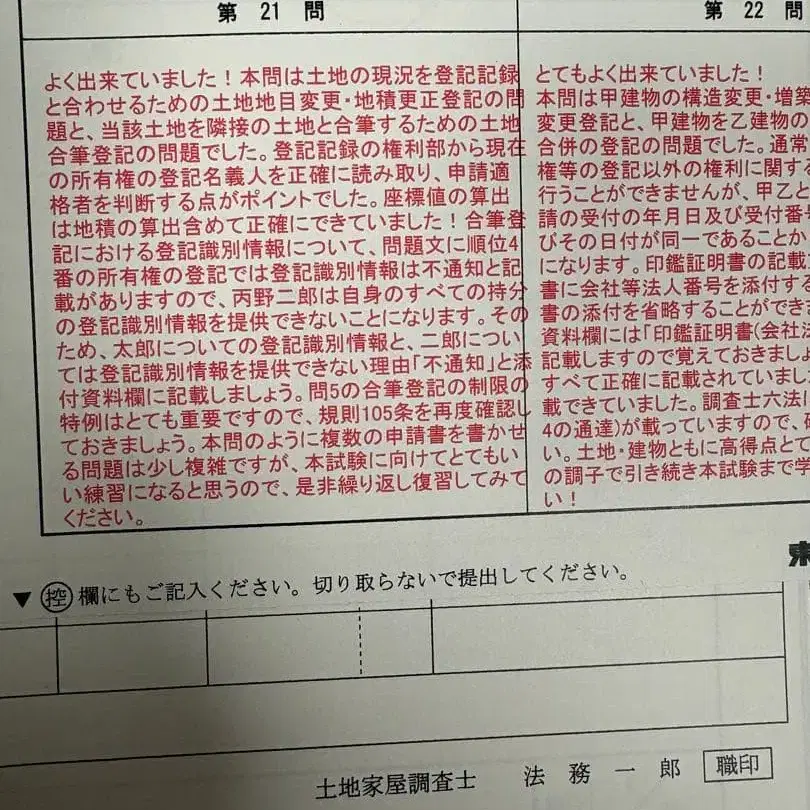 第 21 問
よく出来ていました！本問は土地の現況を登記記録
と合わせるための土地地目変更・地積更正登記の問
題と、当該土地を隣接の土地と合筆するための土地
合筆登記の問題でした。登記記録の権利部から現在
の所有権の登記名義人を正確に読み取り、申請適
格者を判断する点がポイントでした。座標値の算出
は地積の算出含めて正確にできていました！合筆登
記における登記識別情報について、問題文に順位4
番の所有権の登記では登記識別情報は不通知と記
載がありますので、丙野二郎は自身のすべての持分
の登記識別情報を提供できないことになります。その
ため、太郎についての登記識別情報と、二郎につい
ては登記識別情報を提供できない理由「不通知」と添
付資料欄に記載しましょう。問5の合筆登記の制限の
特例はとても重要ですので、規則105条を再度確認し
ておきましょう。本問のように複数の申請書を書かせ
る問題は少し複雑ですが、本試験に向けてとてもい
い練習になると思うので、是非繰り返し復習してみて
ください。
第 22 問
とてもよく出来ていました！
本問は甲建物の構造変更・増築
変更登記と、甲建物を乙建物の
合併の登記の問題でした。通常
権等の登記以外の権利に関する
行うことができませんが、甲乙と
請の受付の年月日及び受付番
びその日付が同一であることか
になります。印鑑証明書の記載
書に会社等法人番号を添付する
書の添付を省略することができ
資料欄には「印鑑証明書(会社法
記載しますので覚えておきましょ
すべて正確に記載されていまし
載できていました。調査士六法に
4の通達)が載っていますので、
い。土地・建物ともに高得点とて
の調子で引き続き本試験まで学
い！
東
▼ 控 欄にもご記入ください。切り取らないで提出してください。
土地家屋調査士 法 務 一 郎 職印